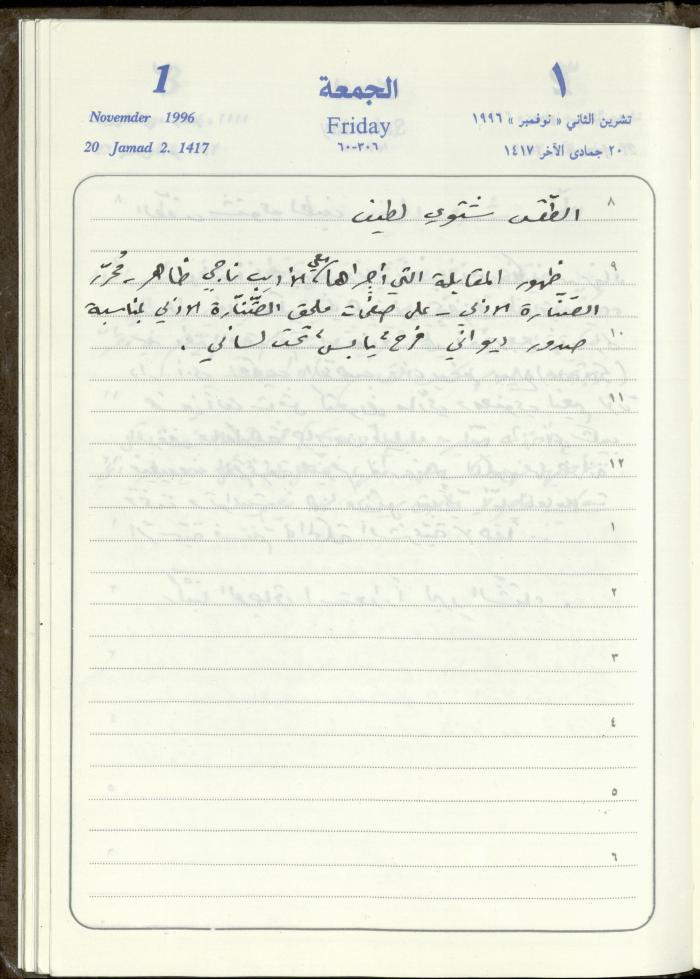 1 الجمعة ١
Novemder 1996 Friday تشرين الثاني « نوفمبر » ١٩٩٦
20 Jamad 2. 1417 ٣٠٦-٦٠ ٢٠ جمادى الآخر ١٤١٧
٨ الطّقس شتوي لطيف
٩ ظهور المقابلة التي أجراها معي الأديب ناجي ظاهر - مُحرّر
الصّنّارة الأدبي - على صفحات ملحق الصّنّارة الأدبي بمناسبة
١٠ صدور ديواني "فرح يابس تحت لساني".
١١
١٢
١
٢
٣
٤
٥
٦